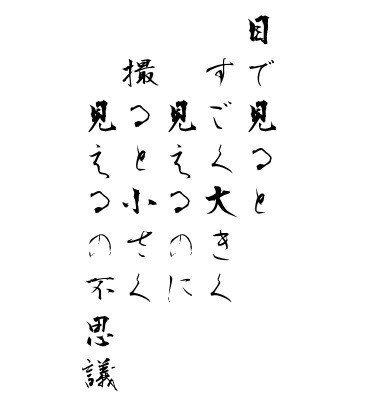 目で見ると
すごく大きく
見えるのに
撮ると小さく
見えるの不思議